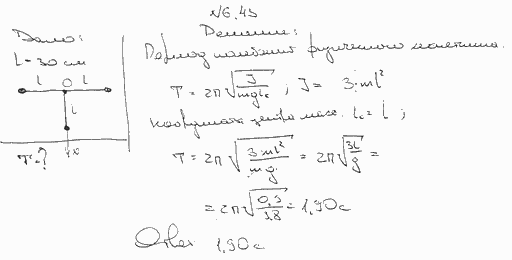 №6.43
Дано:
l = 30 см
l O l
l
x
T-?
Решение:
Период колебания физического маятника.
T = 2π√(J/mgl_c) ; J = 3·ml²
координата центра масс. l_c = l ;
T = 2π√(3·ml²/mg) = 2π√(3l/g) =
= 2π√(0,9/9,8) = 1,90 с
Ответ 1,90 с